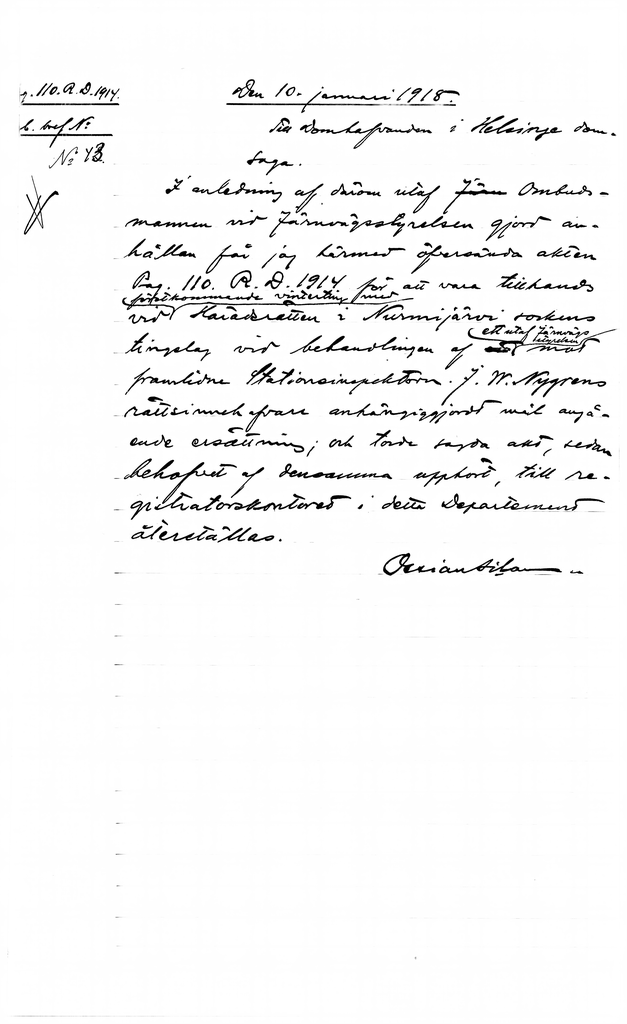 g. 110. R. D. 1914.
b. bref No
No 43.
Den 10. januari 1918.
Till Domhafvanden i Helsinge dom-
saga.
I anledning af därom utaf Järn Ombuds-
mannen vid Järnvägsstyrelsen gjord an-
hållan får jag härmed öfversända akten
Pag. 110. R. D. 1914 för att vara tillhands
vid förstkommande vinterting med
Häradsrätten i Nurmijärvi sockens
tingslag vid behandlingen af ett utaf Järnvägs
styrelsen mot
framlidne Stationsinspektorn J. W. Nygrens
rättsinnehafvare anhängiggjordt mål angå-
ende ersättning; och torde sagda akt, sedan
behofvet af densamma upphört, till re-
gistratorskontoret i detta Departement
återställas.